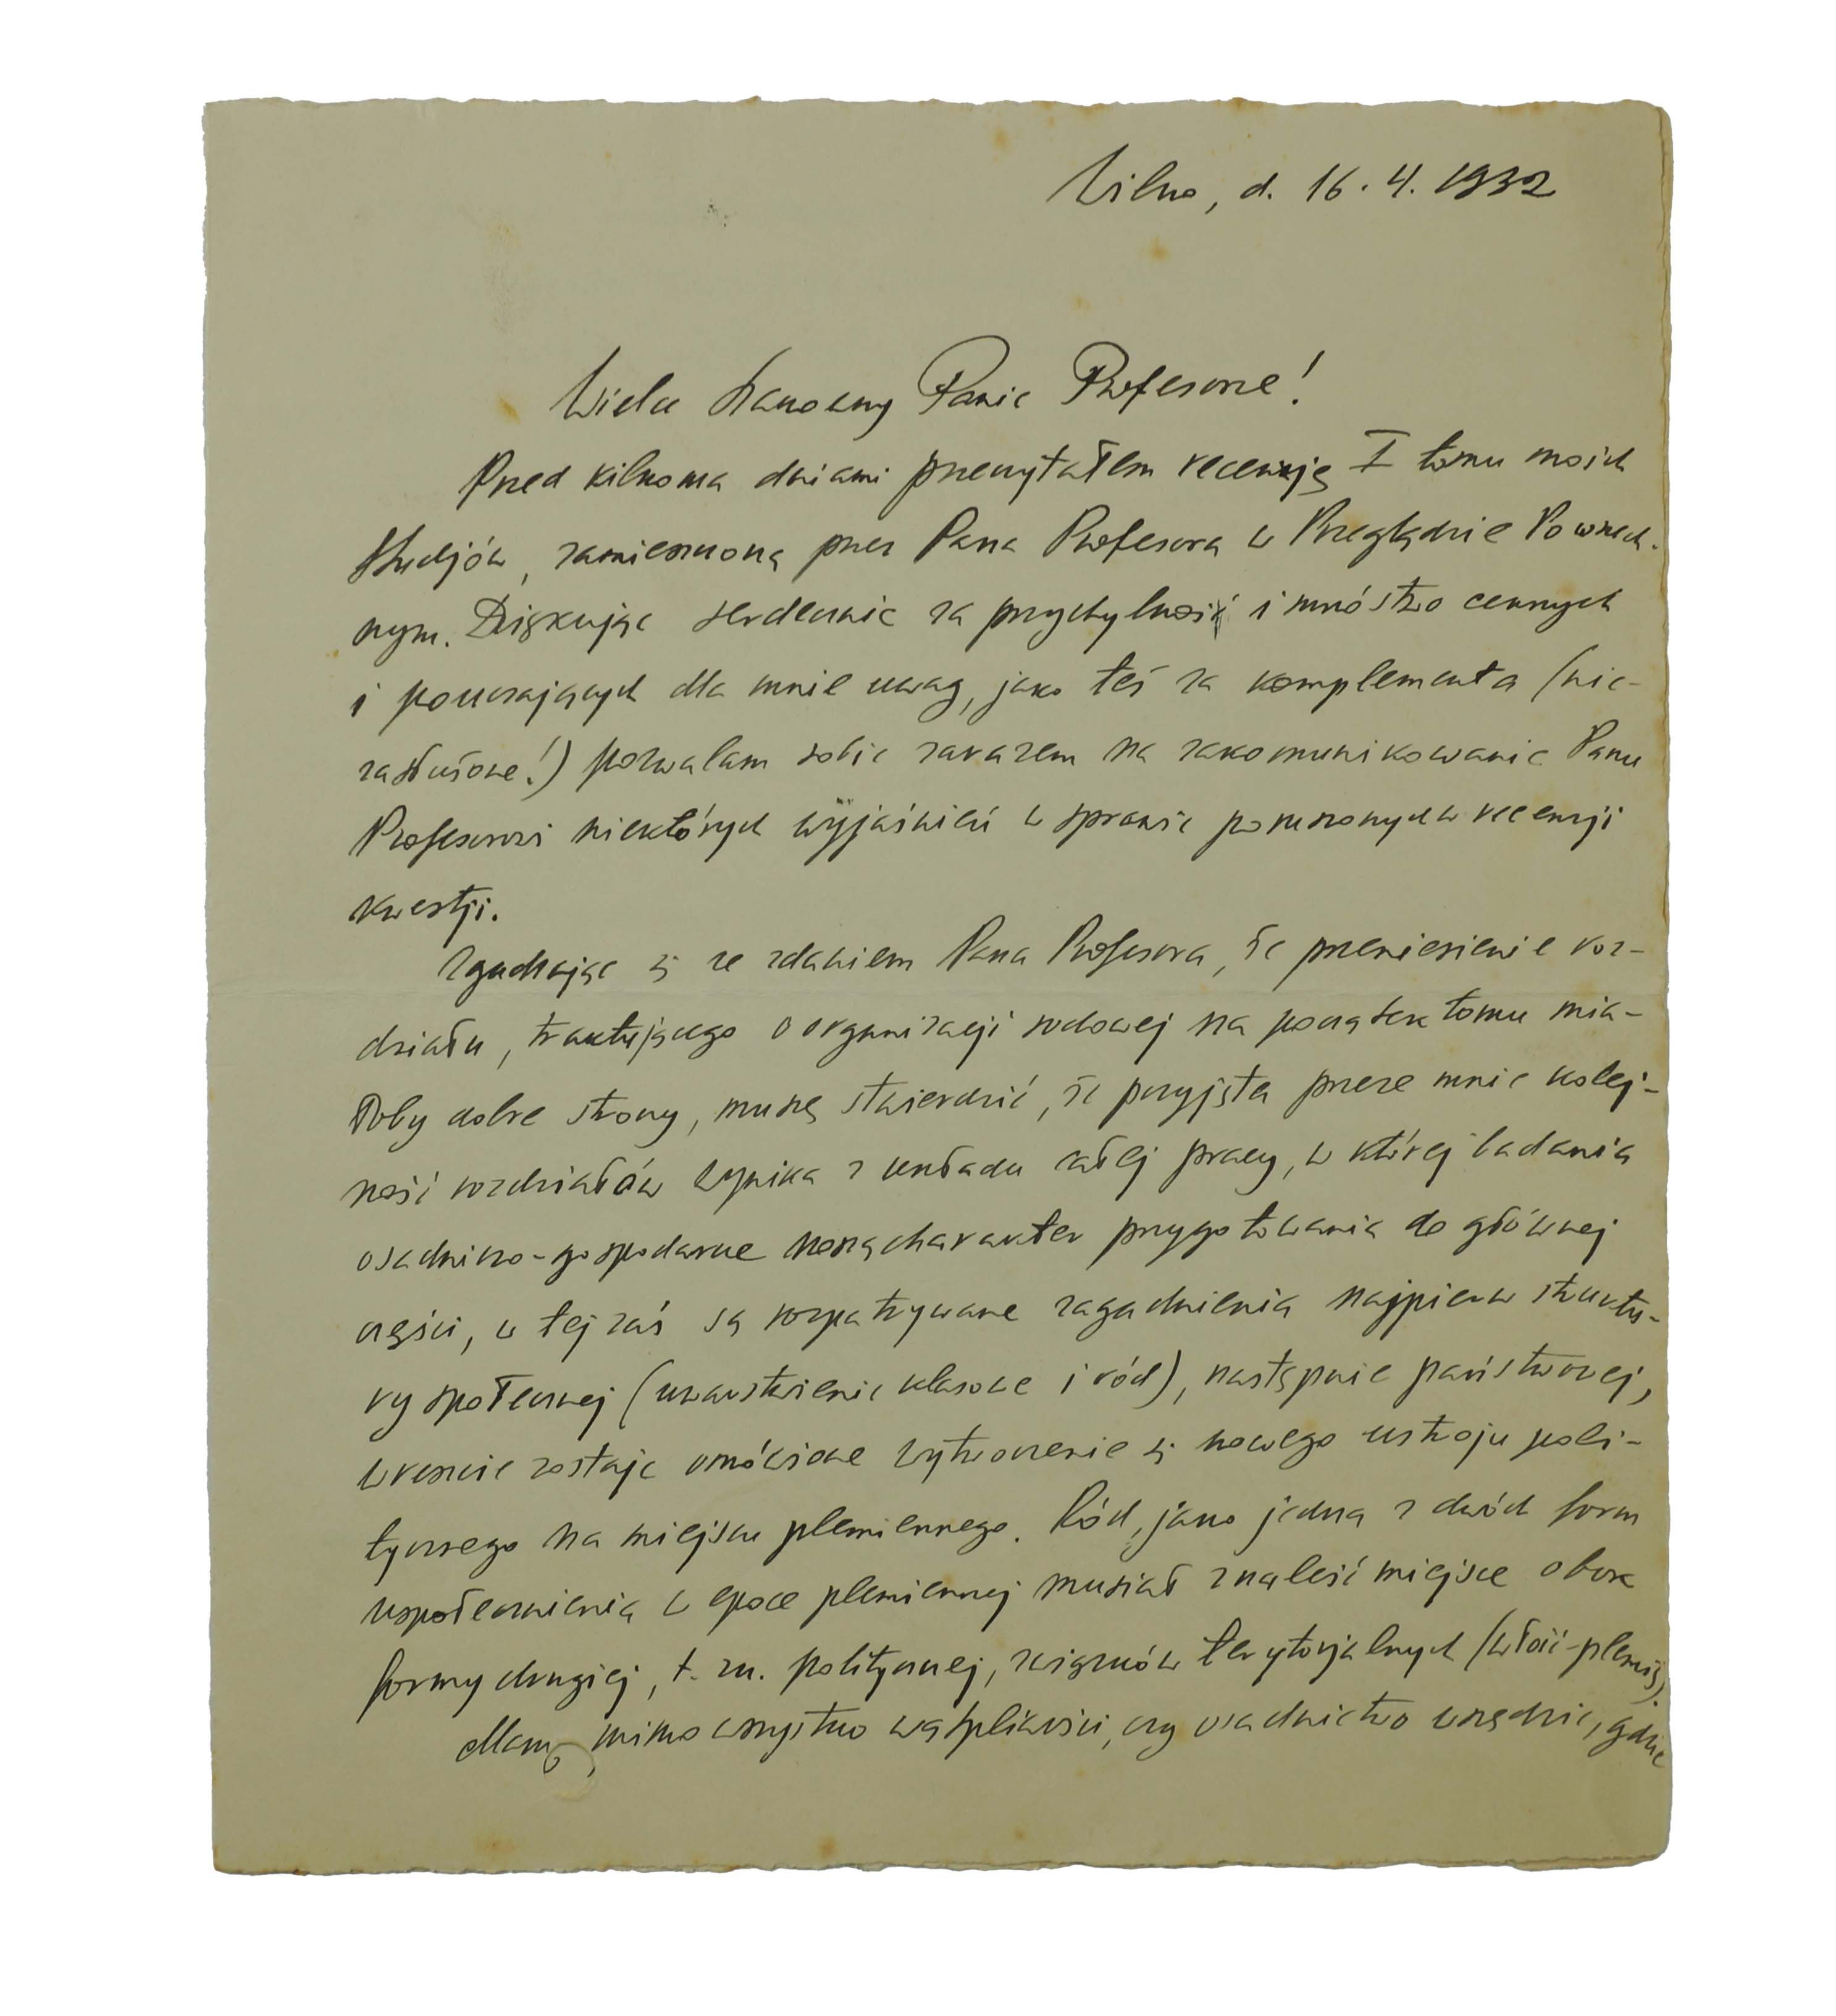 Wilno, d. 16. 4. 1932
Wielce Szanowny Panie Profesorze!
Przed kilkoma dniami przeczytałem recenzję I tomu moich
Studjów, zamieszczoną przez Pana Profesora w Przeglądzie Powszech-
nym. Dziękując serdecznie za przychylność i mnóstwo cennych
i pouczających dla mnie uwag, jako też za komplementa (nie-
zasłużone!) pozwalam sobie zarazem na zakomunikowanie Panu
Profesorowi niektórych wyjaśnień w sprawie poruszonych w recenzji
kwestji.
Zgadzając się ze zdaniem Pana Profesora, że przeniesienie roz-
działu, traktującego o organizacji rodowej na początek tomu mia-
łoby dobre strony, muszę stwierdzić, że przyjęta przeze mnie kolej-
ność rozdziałów wynika z układu całej pracy, w której badania
osadniczo-gospodarcze noszą charakter przygotowania do głównej
części, w tej zaś są rozpatrywane zagadnienia najpierw struktu-
ry społecznej (uwarstwienie klasowe i ród), następnie państwowej,
wreszcie zostaje omówione wytworzenie się nowego ustroju poli-
tycznego na miejscu plemiennego. Ród, jako jedna z dwóch form
uspołecznienia w epoce plemiennej musiał znaleść miejsce obok
formy drugiej, t. zn. politycznej, związków terytorjalnych (włość-plemię).
Mam, mimo wszystko wątpliwości, czy osadnictwo wszędzie, gdzie